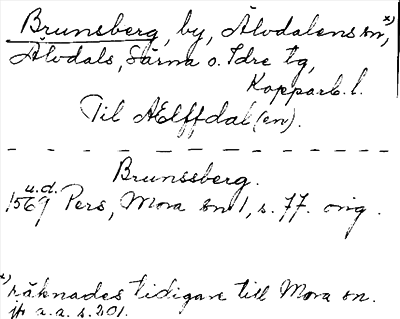 Brunsberg, by, Älvdalens sn,x)
Älvdals, Särna o. Idre tg,
Kopparb. l.
Til AElffdal (en).
Brunssberg.
u.d.
1569 Pers, Mora sn 1, s. 77. orig.
x) räknades tidigare till Mora sn.
jfr a.a. s. 201.